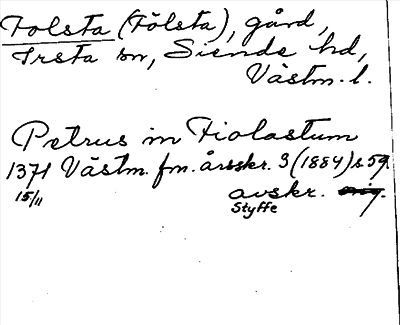 Folsta (Fölsta), gård,
Irsta sn, Siende hd,
Västm. l.
Petrus in Fiolastum
1371 Västm. fm. årsskr. 3 (1884) s. 59.
15/11 avskr. orig.
Styffe